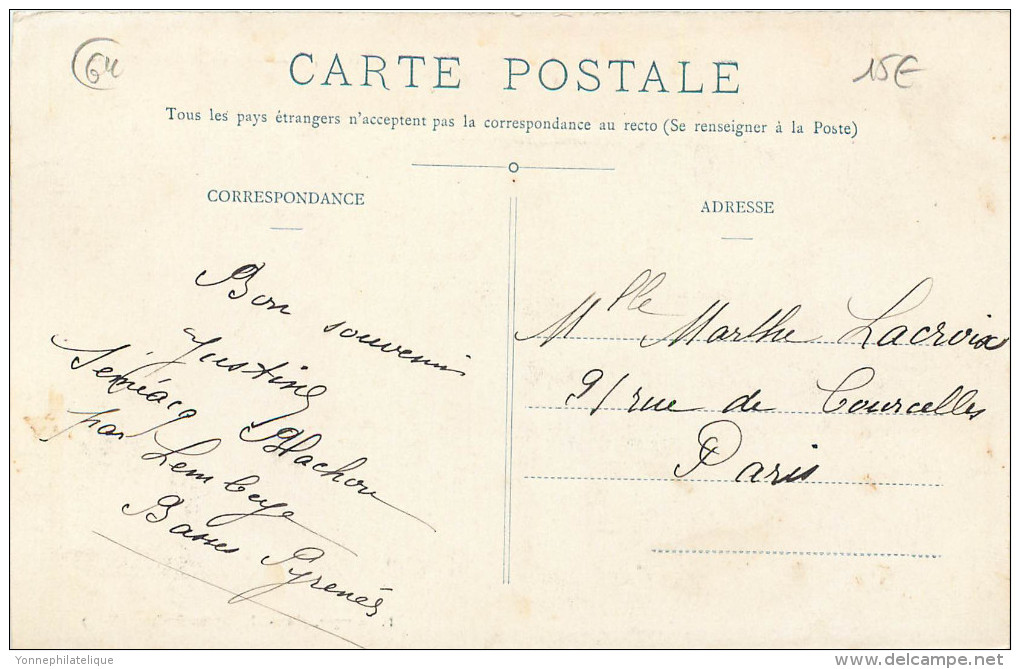 64
15€
CARTE POSTALE
Tous les pays étrangers n'acceptent pas la correspondance au recto (Se renseigner à la Poste)
CORRESPONDANCE
Bon souvenir
Justine
Séméacq Blachon
par Lembeye
Basses Pyrenés
ADRESSE
Mlle Marthe Lacroix
91 rue de Courcelles
Paris
Yonnephilatelique
delcampe.net